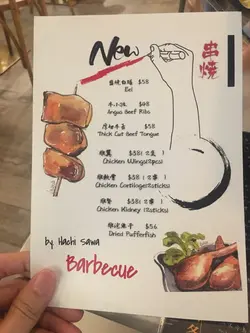 New
串燒
$58
Eel
牛小排 $48
Angus Beef Ribs
厚切牛舌 $58
Thick Cut Beef Tongue
雞翼 $38(2支)
Chicken Wings(2pcs)
雞軟骨 $38(2串)
Chicken Cartilage(2sticks)
雞腎 $38(2串)
Chicken Kidney (2sticks)
$56
Dried Pufferfish
by. Hachi Sawa
Barbecue